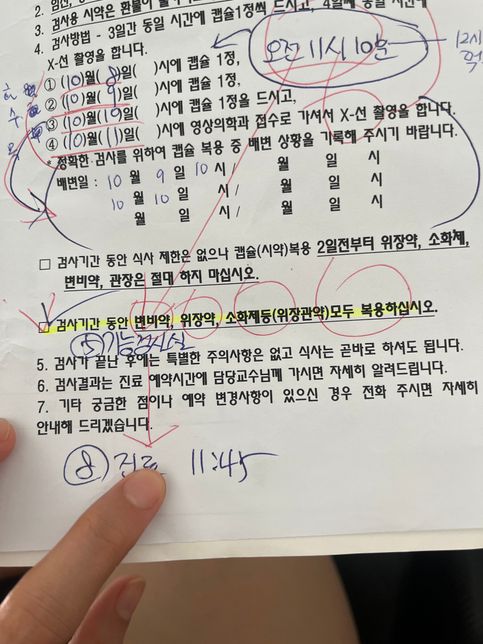 3. 검사용 시약은 환불이
4. 검사방법 - 3일간 동일 시간에 캡슐1정씩 드시고, 4일째 동일 시간에
X-선 촬영을 합니다.
오전 11시 10분
12시
① (10)월( 8)일( )시에 캡슐 1정,
② (10)월( 9)일( )시에 캡슐 1정,
③ (10)월(10)일( )시에 캡슐 1정을 드시고,
④ (10)월(11)일( )시에 영상의학과 접수로 가셔서 X-선 촬영을 합니다.
* 정확한 검사를 위하여 캡슐 복용 중 배변 상황을 기록해 주시기 바랍니다.
배변일 : 10 월 9 일 10 시 / 월 일 시
10 월 10 일 시 / 월 일 시
월 일 시 / 월 일 시
□ 검사기간 동안 식사 제한은 없으나 캡슐(시약)복용 2일전부터 위장약, 소화제,
변비약, 관장은 절대 하지 마십시오.
□ 검사기간 동안 변비약, 위장약, 소화제등(위장관약)모두 복용하십시오.
⑤ 기능검사실
5. 검사가 끝난 후에는 특별한 주의사항은 없고 식사는 곧바로 하셔도 됩니다.
6. 검사결과는 진료 예약시간에 담당교수님께 가시면 자세히 알려드립니다.
7. 기타 궁금한 점이나 예약 변경사항이 있으신 경우 전화 주시면 자세히
안내해 드리겠습니다.
⑧ 진료 11:45